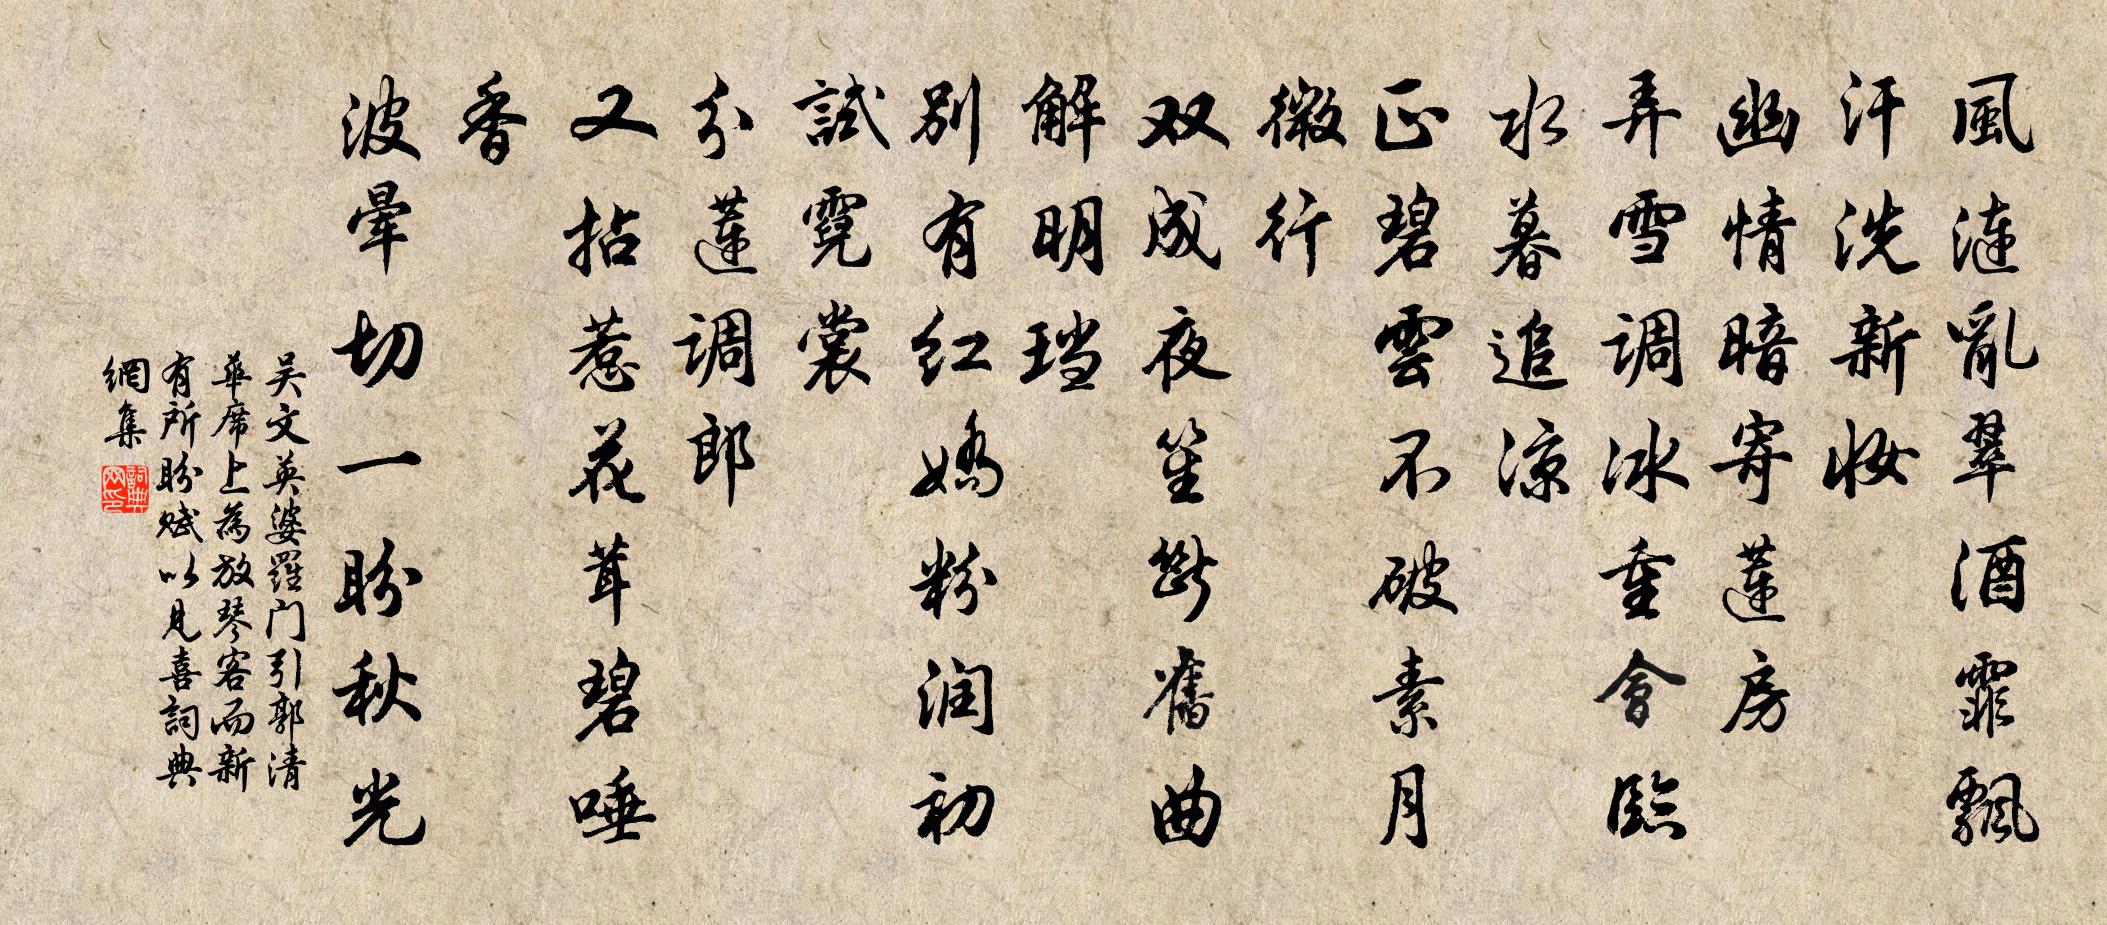 風漣亂翠酒霏飄
汗洗新妝
幽情暗寄蓮房
弄雪调冰重會臨
水暮追涼
正碧雲不破素月
微行
双成夜笙斷舊曲
解明珰
别有红嬌粉润初
試霓裳
分蓮调郎
又拈惹花茸碧唾
香
波暈切一盼秋光
吴文英婆羅门引郭清
華席上為放琴客而新
有所盼賦以見喜詞典
網集
詞典
网印